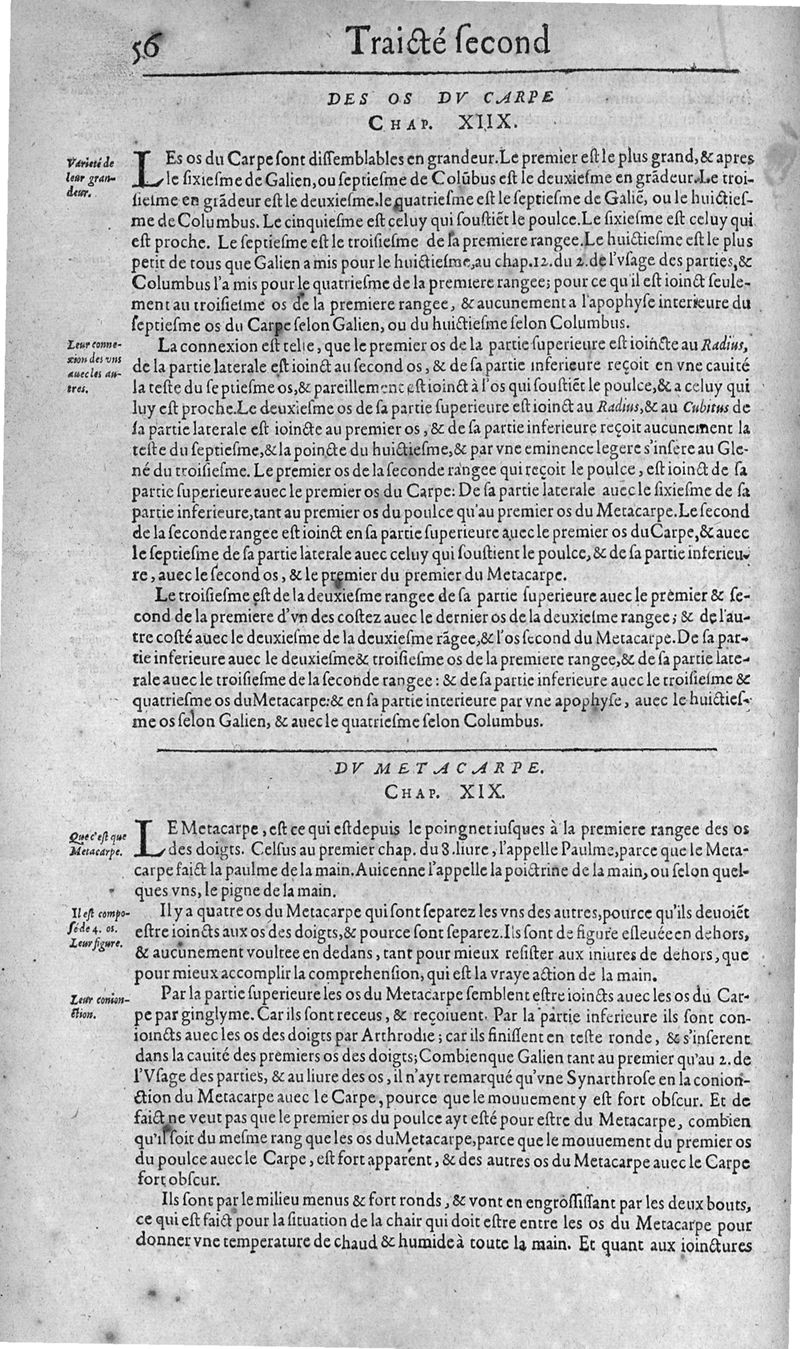 56
Traicté ſecond
DES OS DV CARPE
CHAP. XIIX.
Varieté de
leur gran-
deur.
LEs os du Carpe ſont diſſemblables en grandeur. Le premier eſt le plus grand, & apres
le ſixieſme de Galien, ou ſeptieſme de Colūbus eſt le deuxieſme en grādeur. Le troi-
ſieſme en grādeur eſt le deuxieſme. le quatrieſme eſt le ſeptieſme de Galiē, ou le huictieſ-
me de Columbus. Le cinquieſme eſt celuy qui ſouſtiēt le poulce. Le ſixieſme eſt celuy qui
eſt proche. Le ſeptieſme eſt le troiſieſme de ſa premiere rangee. Le huictieſme eſt le plus
petit de tous que Galien a mis pour le huictieſme, au chap. 12. du 2. de l'vſage des parties, &
Columbus l'a mis pour le quatrieſme de la premiere rangee; pour ce qu'il eſt ioinct ſeule-
ment au troiſieſme os de la premiere rangee, & aucunement a l'apophyſe interieure du
ſeptieſme os du Carpe ſelon Galien, ou du huictieſme ſelon Columbus.
Leur conne-
xion des vns
auec les au-
tres.
La connexion eſt telle, que le premier os de la partie ſuperieure eſt ioincte au Radius,
de la partie laterale eſt ioinct au ſecond os, & de ſa partie inferieure reçoit en vne cauité
la teſte du ſeptieſme os, & pareillement eſt ioinct à l'os qui ſouſtiēt le poulce, & a celuy qui
luy eſt proche. Le deuxieſme os de ſa partie ſuperieure eſt ioinct au Radius, & au Cubitus de
ſa partie laterale eſt ioinct au premier os, & de ſa partie inferieure reçoit aucunement la
teſte du ſeptieſme, & la poincte du huictieſme, & par vne eminence legere s'inſere au Gle-
né du troiſieſme. Le premier os de la ſeconde rangee qui reçoit le poulce, eſt ioinct de ſa
partie ſuperieure auec le premier os du Carpe: De ſa partie laterale auec le ſixieſme de ſa
partie inferieure, tant au premier os du poulce qu'au premier os du Metacarpe. Le ſecond
de la ſeconde rangee eſt ioinct en ſa partie ſuperieure auec le premier os du Carpe, & auec
le ſeptieſme de ſa partie laterale auec celuy qui ſouſtient le poulce, & de ſa partie inferieu-
re, auec le ſecond os, & le premier du premier du Metacarpe.
Le troiſieſme eſt de la deuxieſme rangee de ſa partie ſuperieure auec le premier & ſe-
cond de la premiere d'vn des coſtez auec le dernier os de la deuxieſme rangee; & de l'au-
tre coſté auec le deuxieſme de la deuxieſme rāgee, & l'os ſecond du Metacarpe. De ſa par-
tie inferieure auec le deuxieſme & troiſieſme os de la premiere rangee, & de ſa partie late-
rale auec le troiſieſme de la ſeconde rangee: & de ſa partie inferieure auec le troiſieſme &
quatrieſme os du Metacarpe: & en ſa partie interieure par vne apophyſe, auec le huictieſ-
me os ſelon Galien, & auec le quatrieſme ſelon Columbus.
DV METACARPE.
CHAP. XIX.
Que c'eſt que
Metacarpe.
LE Metacarpe, eſt ce qui eſt depuis le poingnet iuſques à la premiere rangee des os
des doigts. Celſus au premier chap. du 8. liure, l'appelle Paulme, parce que le Meta-
carpe faict la paulme de la main. Auicenne l'appelle la poictrine de la main, ou ſelon quel-
ques vns, le pigne de la main.
Il eſt compo-
ſé de 4. os.
Leur figure.
Il y a quatre os du Metacarpe qui ſont ſeparez les vns des autres, pource qu'ils deuoiēt
eſtre ioincts aux os des doigts, & pource ſont ſeparez. Ils ſont de figure eſleuée en dehors,
& aucunement voultee en dedans, tant pour mieux reſiſter aux iniures de dehors, que
pour mieux accomplir la comprehenſion, qui eſt la vraye action de la main.
Leur conion-
ction.
Par la partie ſuperieure les os du Metacarpe ſemblent eſtre ioincts auec les os du Car-
pe par ginglyme. Car ils ſont receus, & reçoiuent. Par la partie inferieure ils ſont con-
ioincts auec les os des doigts par Arthrodie; car ils finiſſent en teſte ronde, & s'inſerent
dans la cauité des premiers os des doigts; Combien que Galien tant au premier qu'au 2. de
l'Vſage des parties, & au liure des os, il n'ayt remarqué qu'vne Synarthroſe en la conion-
ction du Metacarpe auec le Carpe, pource que le mouuement y eſt fort obſcur. Et de
faict ne veut pas que le premier os du poulce ayt eſté pour eſtre du Metacarpe, combien
qu'il ſoit du meſme rang que les os du Metacarpe, parce que le mouuement du premier os
du poulce auec le Carpe, eſt fort apparent, & des autres os du Metacarpe auec le Carpe
fort obſcur.
Ils ſont par le milieu menus & fort ronds, & vont en engroſſiſſant par les deux bouts,
ce qui eſt faict pour la ſituation de la chair qui doit eſtre entre les os du Metacarpe pour
donner vne temperature de chaud & humide à toute la main. Et quant aux ioinctures